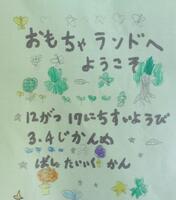 おもちゃランドへ
ようこそ
12がつ 17にちすいようび
3.4じかんめ
ばしょ たいいくかん